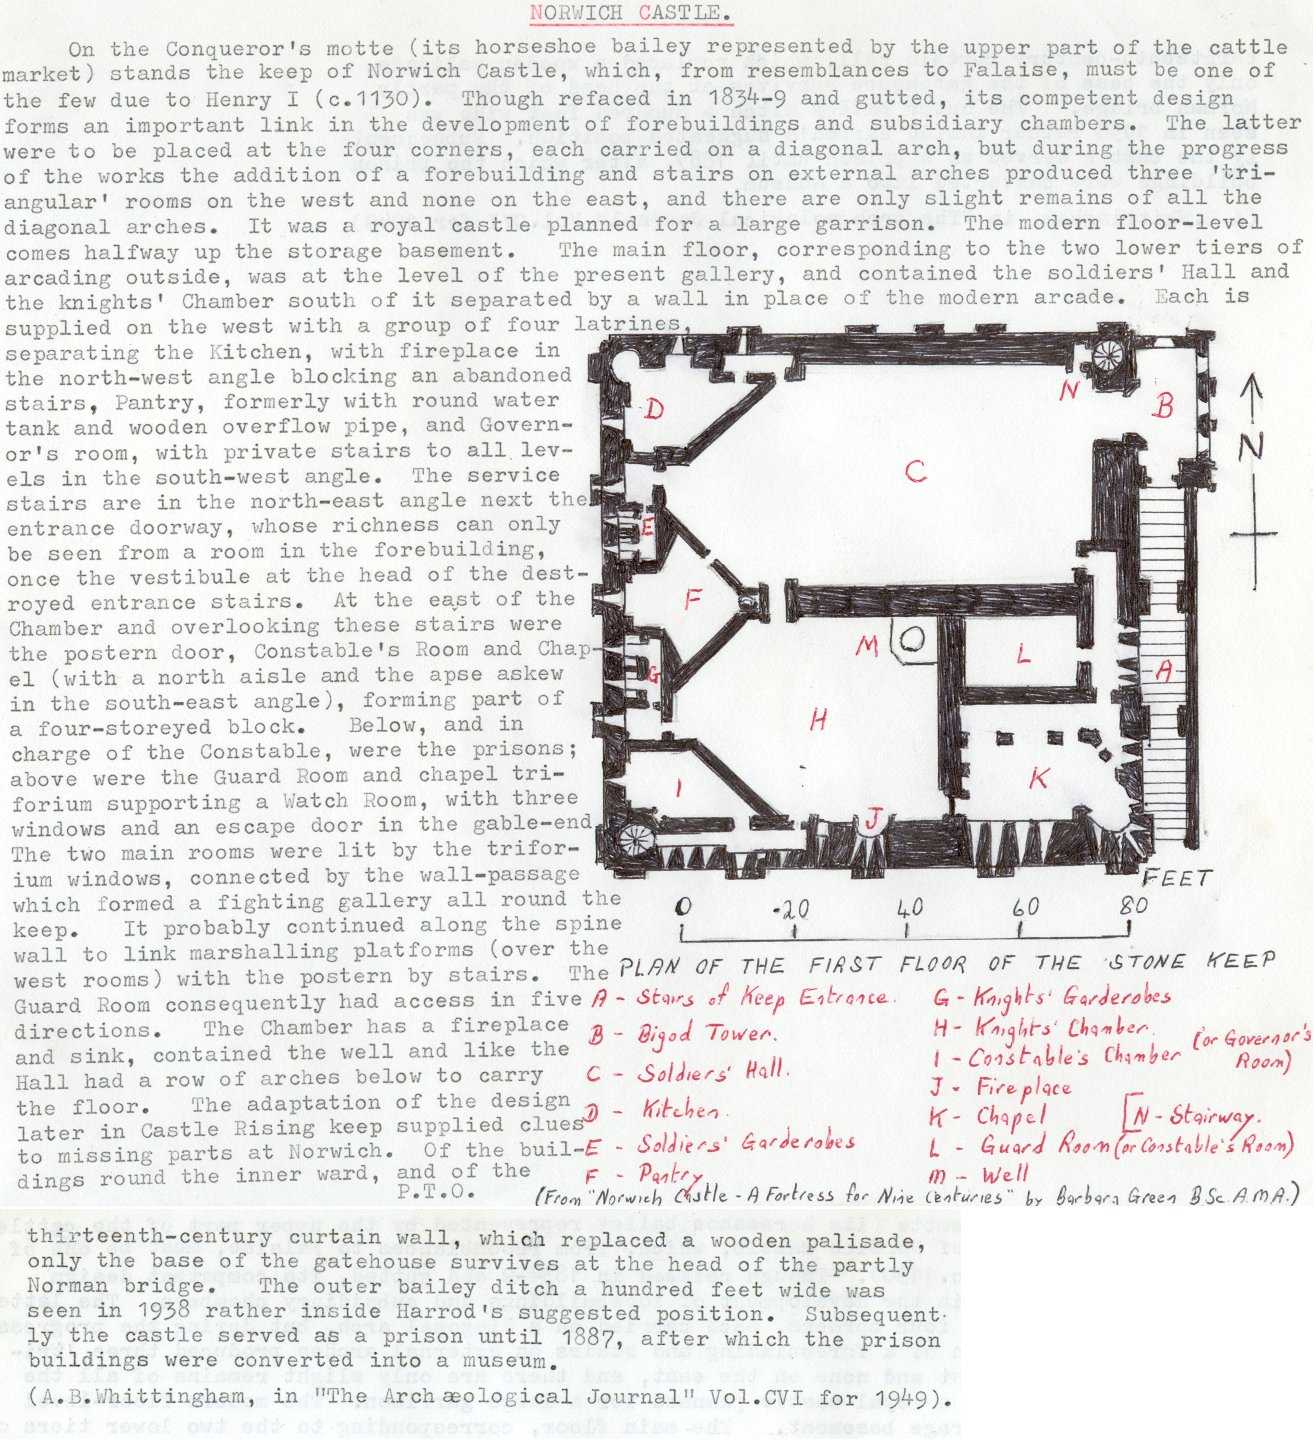 NORWICH CASTLE.
On the Conqueror's motte (its horseshoe bailey represented by the upper part of the cattle
market) stands the keep of Norwich Castle, which, from resemblances to Falaise, must be one of
the few due to Henry I (c.1130). Though refaced in 1834-9 and gutted, its competent design
forms an important link in the development of forebuildings and subsidiary chambers. The latter
were to be placed at the four corners, each carried on a diagonal arch, but during the progress
of the works the addition of a forebuilding and stairs on external arches produced three 'tri-
angular' rooms on the west and none on the east, and there are only slight remains of all the
diagonal arches. It was a royal castle planned for a large garrison. The modern floor-level
comes halfway up the storage basement. The main floor, corresponding to the two lower tiers of
arcading outside, was at the level of the present gallery, and contained the soldiers' Hall and
the knights' Chamber south of it separated by a wall in place of the modern arcade. Each is
supplied on the west with a group of four latrines,
separating the Kitchen, with fireplace in
the north-west angle blocking an abandoned
stairs, Pantry, formerly with round water
tank and wooden overflow pipe, and Govern-
or's room, with private stairs to all lev-
els in the south-west angle. The service
stairs are in the north-east angle next the
entrance doorway, whose richness can only
be seen from a room in the forebuilding,
once the vestibule at the head of the dest-
royed entrance stairs. At the east of the
Chamber and overlooking these stairs were
the postern door, Constable's Room and Chap-
el (with a north aisle and the apse askew
in the south-east angle), forming part of
a four-storeyed block. Below, and in
charge of the Constable, were the prisons;
above were the Guard Room and chapel tri-
forium supporting a Watch Room, with three
windows and an escape door in the gable-end
The two main rooms were lit by the trifor-
ium windows, connected by the wall-passage
which formed a fighting gallery all round the
keep. It probably continued along the spine
wall to link marshalling platforms (over the
west rooms) with the postern by stairs. The
Guard Room consequently had access in five
directions. The Chamber has a fireplace
and sink, contained the well and like the
Hall had a row of arches below to carry
the floor. The adaptation of the design
later in Castle Rising keep supplied clues
to missing parts at Norwich. Of the buil-
dings round the inner ward, and of the
P.T.O.
D
C
N
B
N
E
F
M
L
G
A
H
K
I
J
FEET
0 20 40 60 80
PLAN OF THE FIRST FLOOR OF THE STONE KEEP
A - Stairs of Keep Entrance.
B - Bigod Tower.
C - Soldiers' Hall.
D - Kitchen.
E - Soldiers' Garderobes
F - Pantry
G - Knights' Garderobes
H - Knights' Chamber.
I - Constable's Chamber (or Governor's Room)
J - Fireplace
K - Chapel
[N - Stairway.
L - Guard Room (or Constable's Room)
M - Well
(From "Norwich Castle - A Fortress for Nine Centuries" by Barbara Green B.Sc. A.M.A.)
thirteenth-century curtain wall, which replaced a wooden palisade,
only the base of the gatehouse survives at the head of the partly
Norman bridge. The outer bailey ditch a hundred feet wide was
seen in 1938 rather inside Harrod's suggested position. Subsequent-
ly the castle served as a prison until 1887, after which the prison
buildings were converted into a museum.
(A.B.Whittingham, in "The Archæological Journal" Vol.CVI for 1949).